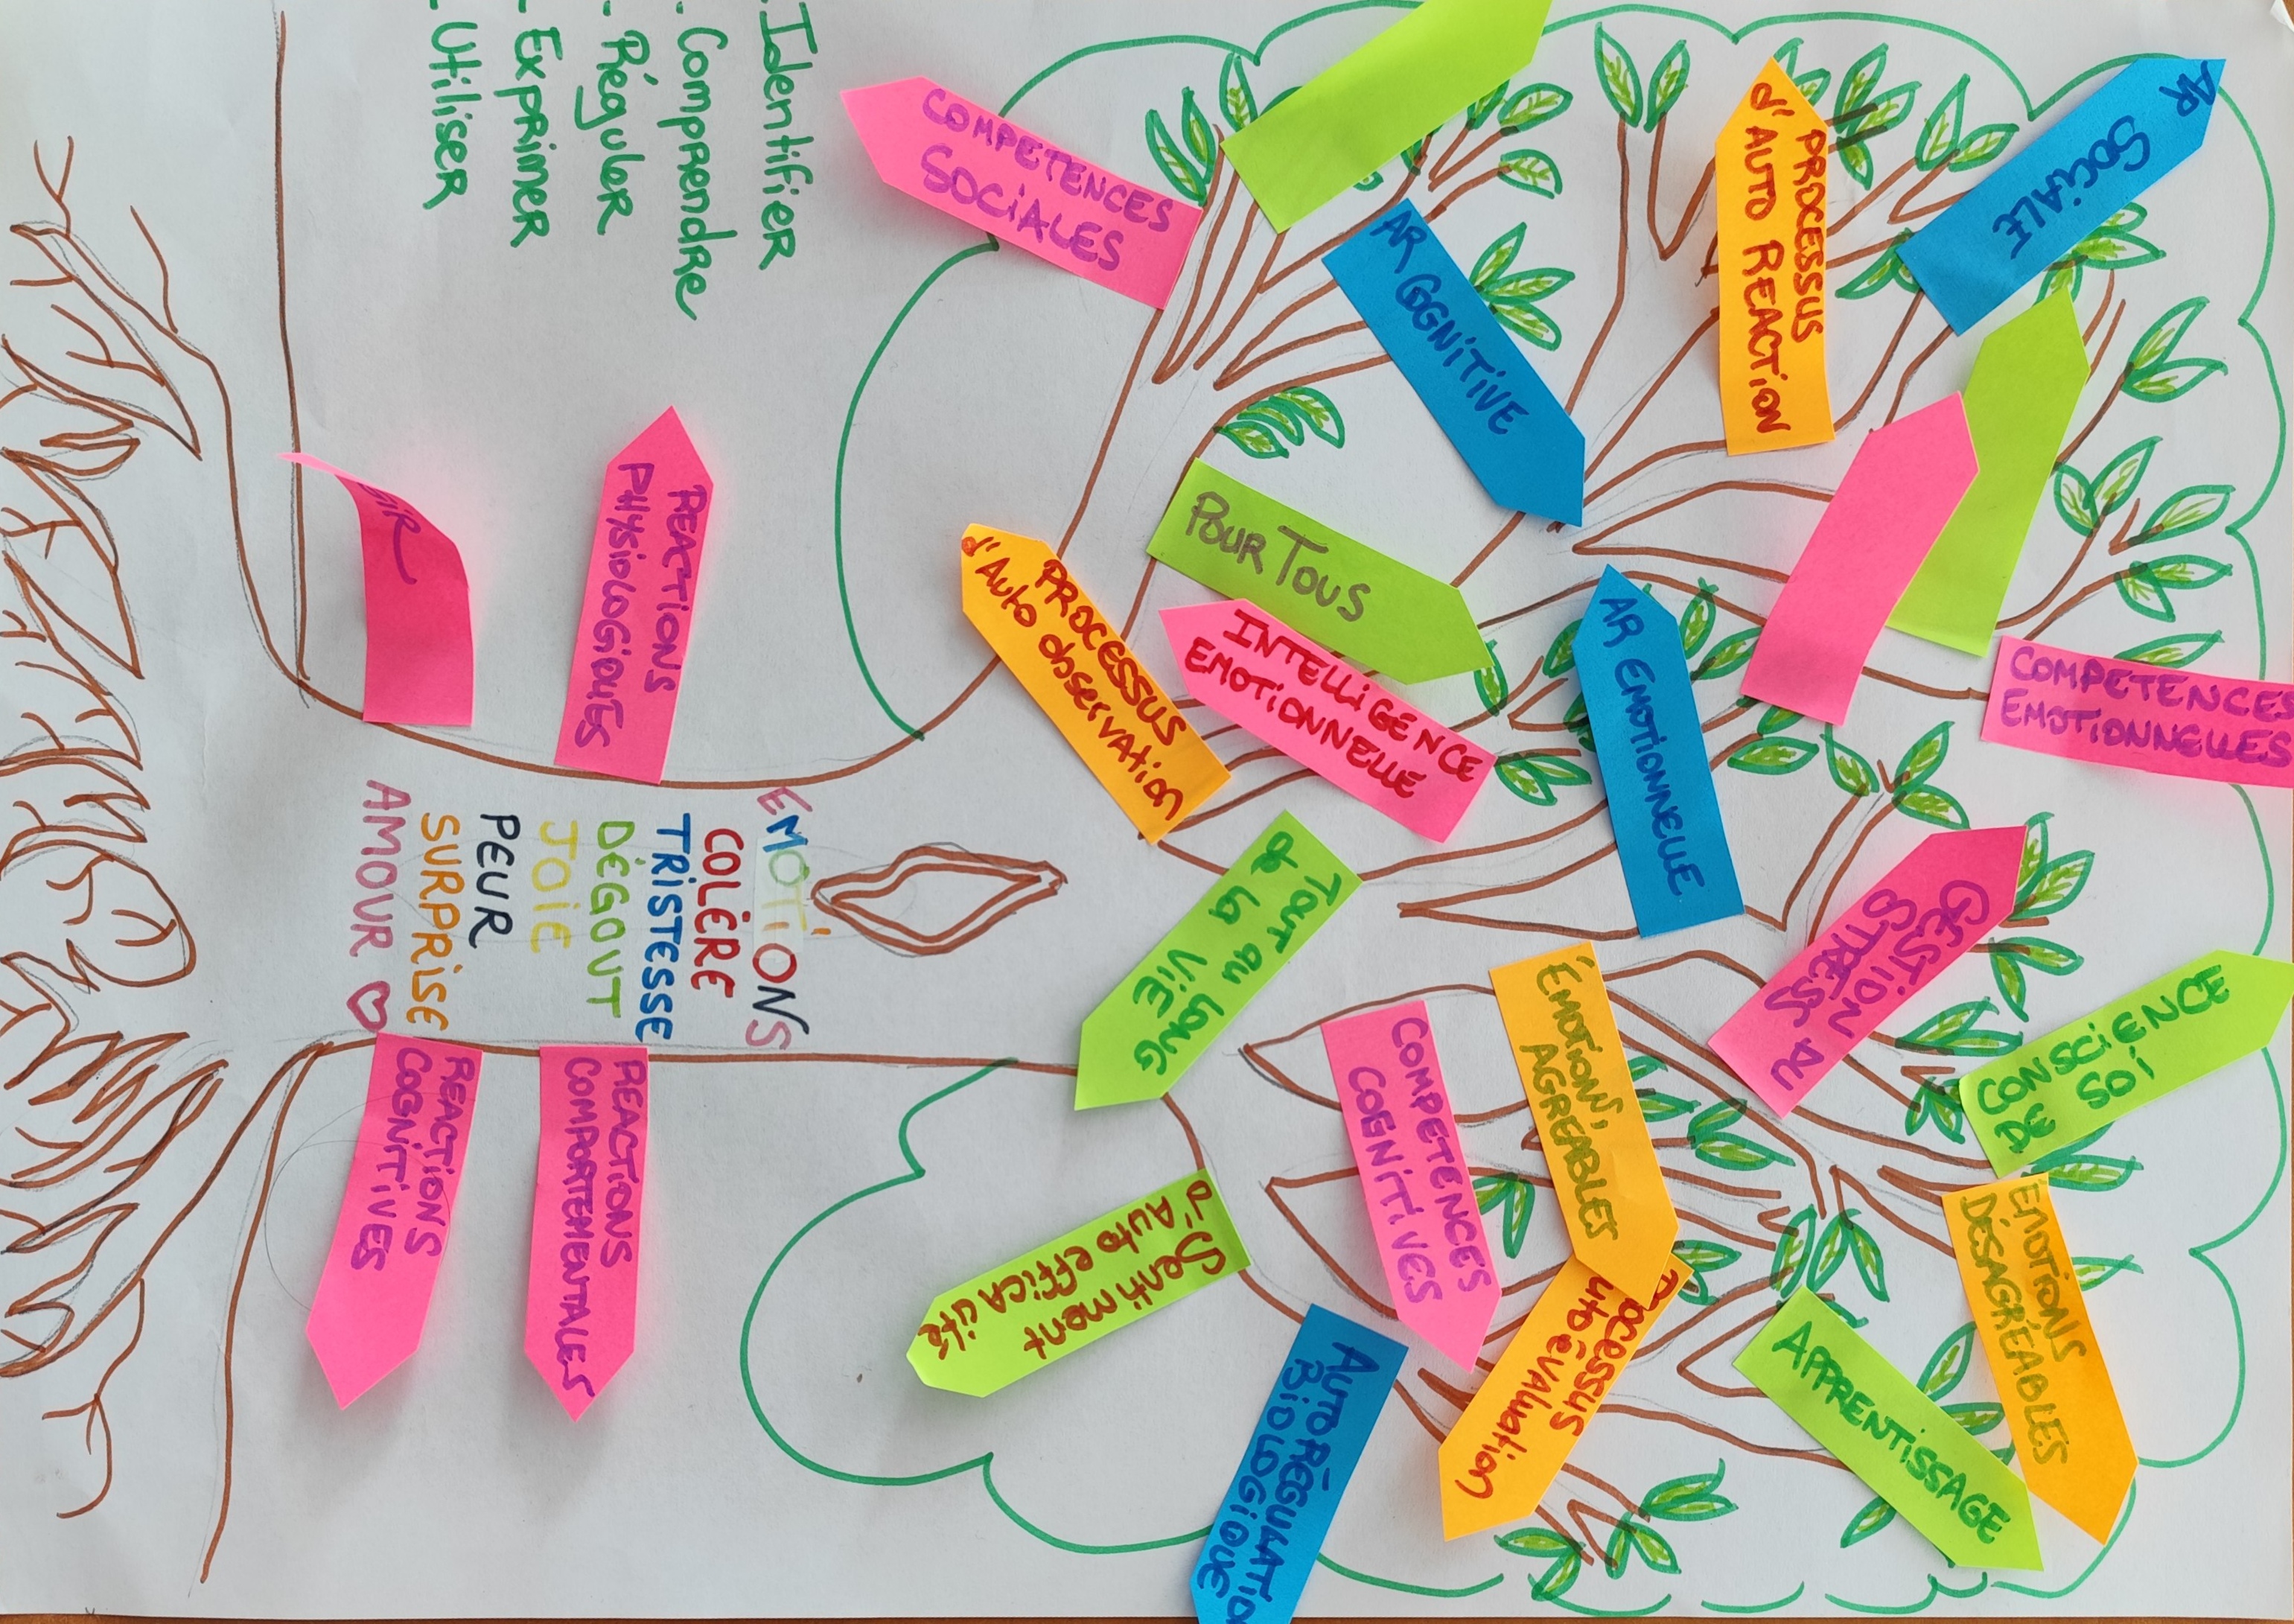 . Identifier
. Comprendre
- Réguler
- Exprimer
- Utiliser
COMPETENCES
SOCIALES
AR COGNITIVE
PROCESSUS
d'AUTO REACTION
AR SOCIALE
POUR TOUS
PROCESSUS
d'Auto observation
INTELLIGENCE
EMOTIONNELLE
AR EMOTIONNELLE
COMPETENCES
EMOTIONNELLES
GESTION
STRESS
Tout au long
de la ViE
ÉMOTIONS
AGREABLES
COMPETENCES
COGNITIVES
CONSCIENCE
DE SOI
EMOTIONS
DÉSAGRÉABLES
Sentiment
d'Auto efficacité
APPRENTISSAGE
AUTO RÉGULATIO
BIOLOGIQUE
REACTIONS
PHYSIOLOGIQUES
ÉMOTIONS
COLÈRE
TRISTESSE
DÉGOUT
JOIE
PEUR
SURPRISE
AMOUR
REACTIONS
COMPORTEMENTALES
REACTIONS
COGNITIVES